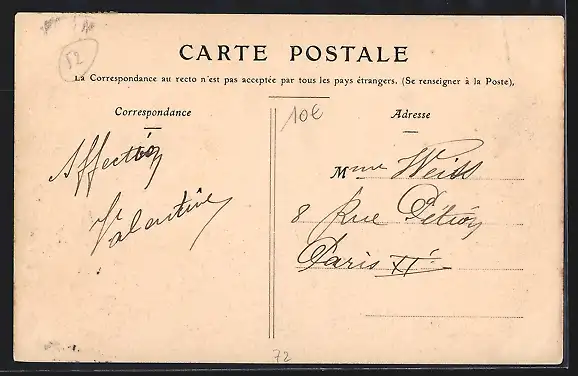 52
CARTE POSTALE
La Correspondance au recto n'est pas acceptée par tous les pays étrangers. (Se renseigner à la Poste).
10€
Correspondance
Adresse
Affection
Valentine
Mme Weiss
8 Rue Pétion
Paris XIe
72